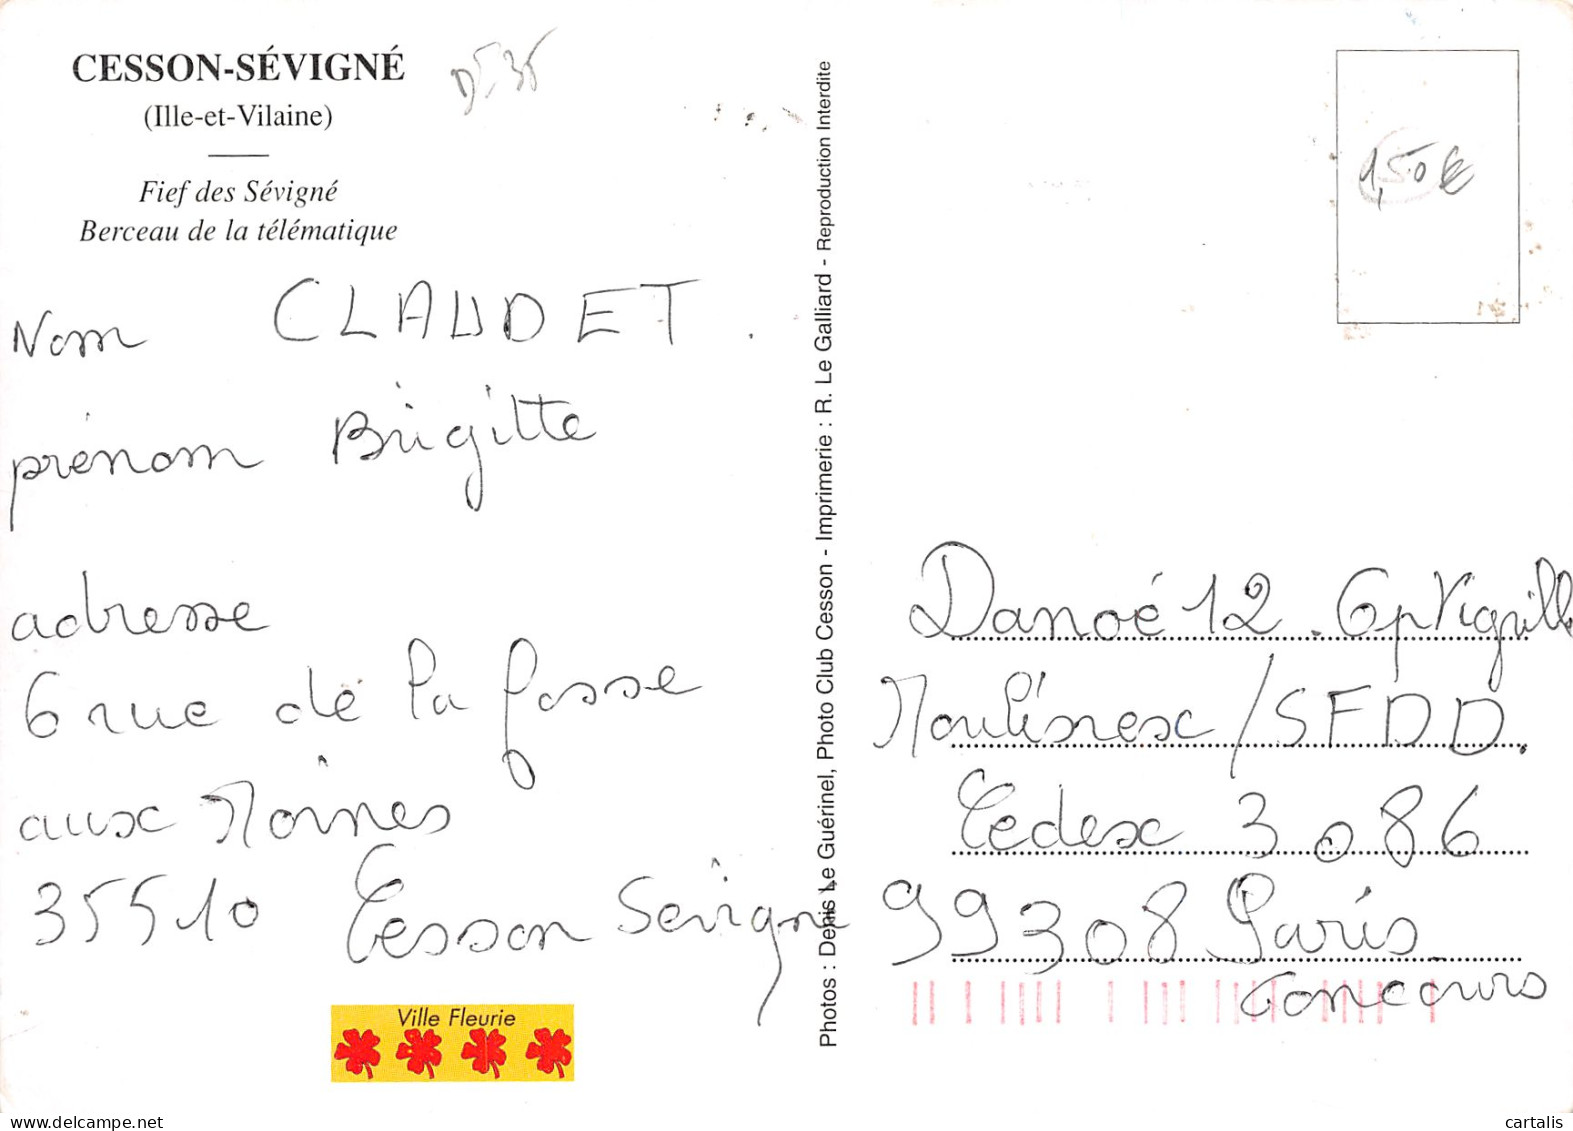 CESSON-SÉVIGNÉ
(Ille-et-Vilaine)
Fief des Sévigné
Berceau de la télématique
Nom CLAUDET.
prénom Brigitte
adresse
6 rue de la fosse
aux Moines
35510 Cesson Sevigne
Ville Fleurie
Photos : Denis Le Guérinel, Photo Club Cesson - Imprimerie : R. Le Galliard - Reproduction Interdite
1,50€
Danoé 12.
Moulinex/SFDD.
Cedex 3086
99308 Paris
Concours
cartalis